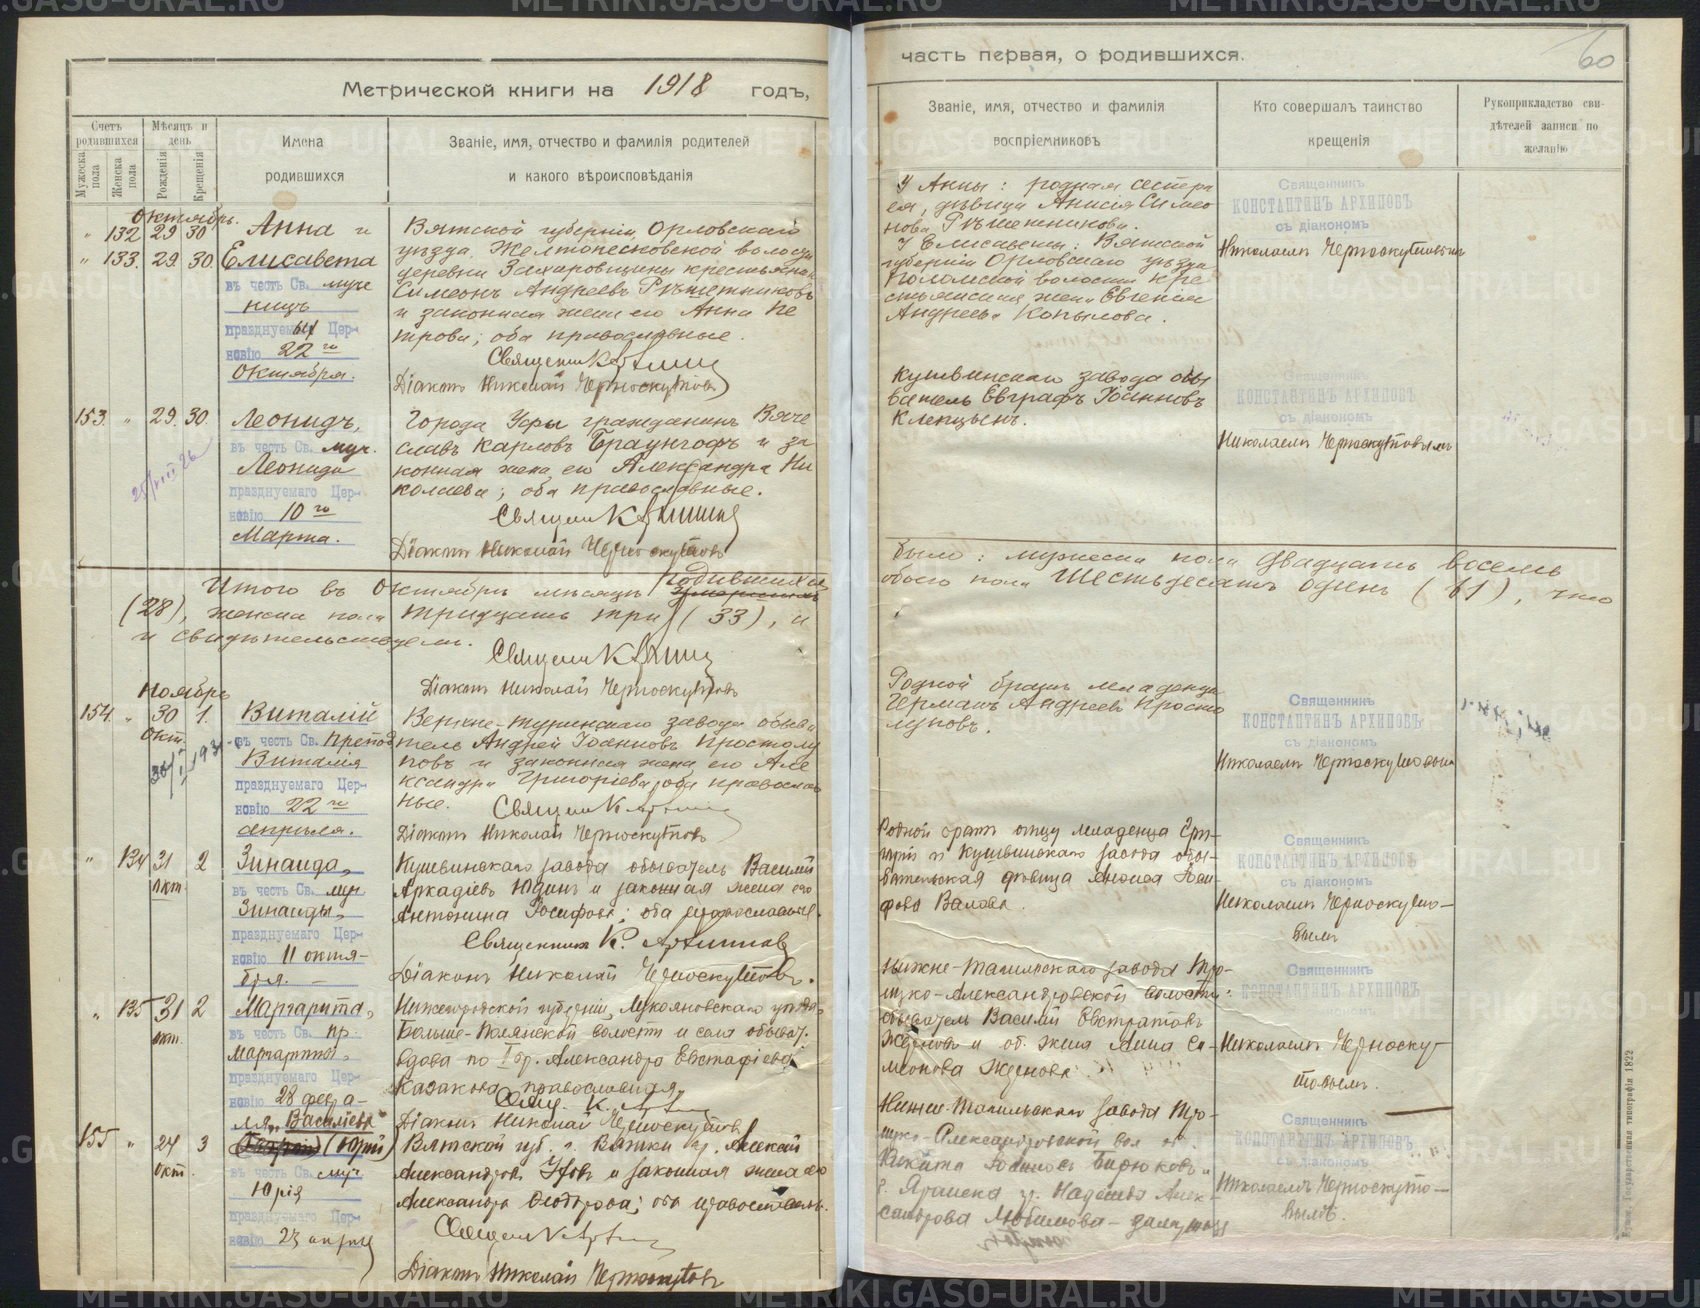 Метрической книги на 1918 годъ,
Счетъ родившихся
Мѣсяцъ и день
Мужеска пола
Женска пола
Рожденія
Крещенія
Имена
родившихся
Званіе, имя, отчество и фамилія родителей
и какого вѣроисповѣданія
Октябрь.
" 132 29 30
" 133. 29. 30.
Анна и
Елисавета
въ честь Св. муче
ницъ
празднуемаго Цер-
ковію 22 го
Октября.
Вятской губерніи Орловскаго
уѣзда, Желтопесковской волости
деревни Захаровщины крестьянинъ
Симеонъ Андреевъ Рѣшетниковъ
и законная жена его Анна Пе
трова; оба православные.
Священникъ К. Архипов
Діаконъ Николай Черноскутовъ
153. " 29. 30.
Леонидъ,
въ честь Св. муч.
Леонида
празднуемаго Цер-
ковію 10 го
Марта.
Города Уфы гражданинъ Вяче
славъ Карловъ Браунгофъ и за
конная жена его Александра Ни
колаева; оба православные.
Священникъ К. Архипов
Діаконъ Николай Черноскутовъ
Итого въ Октябрѣ мѣсяцѣ родившихся
(28), женска пола тридцать три (33), и
и свидѣтельствуемъ.
Священникъ К. Архипов
Діаконъ Николай Черноскутовъ
Ноябрь
154. " 30 1.
Окт.
Виталій
въ честь Св. препод
Виталія
празднуемаго Цер-
ковію 22 го
апрѣля.
Верхне-Туринскаго завода обыва
тель Андрей Іоанновъ Простолу
повъ и законная жена его Але
ксандра Григоріева; оба православ
ные.
Священникъ К. Архипов
Діаконъ Николай Черноскутовъ
" 134 31 2
Окт.
Зинаида,
въ честь Св. муч
Зинаиды,
празднуемаго Цер-
ковію 11 октя-
бря.
Кушвинскаго завода обыватель Василій
Аркадіевъ Юдинъ и законная жена его
Антонина Іосифова; оба православные.
Священникъ К. Архиповъ
Діаконъ Николай Черноскутовъ.
" 135 31 2
окт.
Маргарита,
въ честь Св. пр.
Маргариты,
празднуемаго Цер-
ковію 28 февра-
ля. Васильева
Нижегородской губерніи, Лукояновскаго уѣзда,
Больше-Полянской волости и села обыват.
вдова по I бр. Александра Евстафіева
Казакова, православная.
Свящ. К. Архипов
Діаконъ Николай Черноскутовъ
155 " 24 3
окт.
(Юрій)
въ честь Св. муч
Юрія
празднуемаго Цер-
ковію 23 апрѣля
Вятской губ. г. Вятки гр. Алексѣй
Александровъ и законная жена его
Александра Ѳеодорова; оба православн.
Священникъ К. Архипов
Діаконъ Николай Черноскутовъ
часть первая, о родившихся.
60
Званіе, имя, отчество и фамилія
воспріемниковъ
Кто совершалъ таинство
крещенія
Рукоприкладство сви-
дѣтелей записи по
желанію
У Анны: родная сестра
ея, дѣвица Анисія Симео
нова Рѣшетникова.
У Елисаветы: Вятской
губерніи Орловскаго уѣзда
волости кре
стьянская жена Евгенія
Андреева Копылова.
Священникъ
КОНСТАНТИНЪ АРХИПОВЪ
съ діакономъ
Николаемъ Черноскутовымъ
Кушвинскаго завода обы
ватель Евграфъ Іоанновъ
Клепцынъ.
Священникъ
КОНСТАНТИНЪ АРХИПОВЪ
съ діакономъ
Николаемъ Черноскутовымъ
было: мужеска пола двадцать восемь
обоего пола Шестьдесятъ одинъ (61), что
Родной братъ младенца
Германъ Андреевъ Просто
луповъ.
Священникъ
КОНСТАНТИНЪ АРХИПОВЪ
съ діакономъ
Николаемъ Черноскутовымъ
Родной братъ отцу младенца
и Кушвинскаго завода обы-
вательская дѣвица Іоси-
фова Валова.
Священникъ
КОНСТАНТИНЪ АРХИПОВЪ
съ діакономъ
Николаемъ Черноскуто-
вымъ
Нижне-Тагильскаго завода Тро-
ицко-Александровской волости
обыватель Василій Евстратовъ
и об. жена Анна Си-
меонова
Священникъ
КОНСТАНТИНЪ АРХИПОВЪ
Николаемъ Черноску-
товымъ.
Нижне-Тагильскаго завода Тро-
ицко-Александровской вол. об.
Никита Бирюковъ и
г. Яранска гр. Надежда Алек-
сандрова Любимова
Священникъ
КОНСТАНТИНЪ АРХИПОВЪ
съ діакономъ
Николаемъ Черноскуто-
вымъ.
METRIKI.GASO-URAL.RU